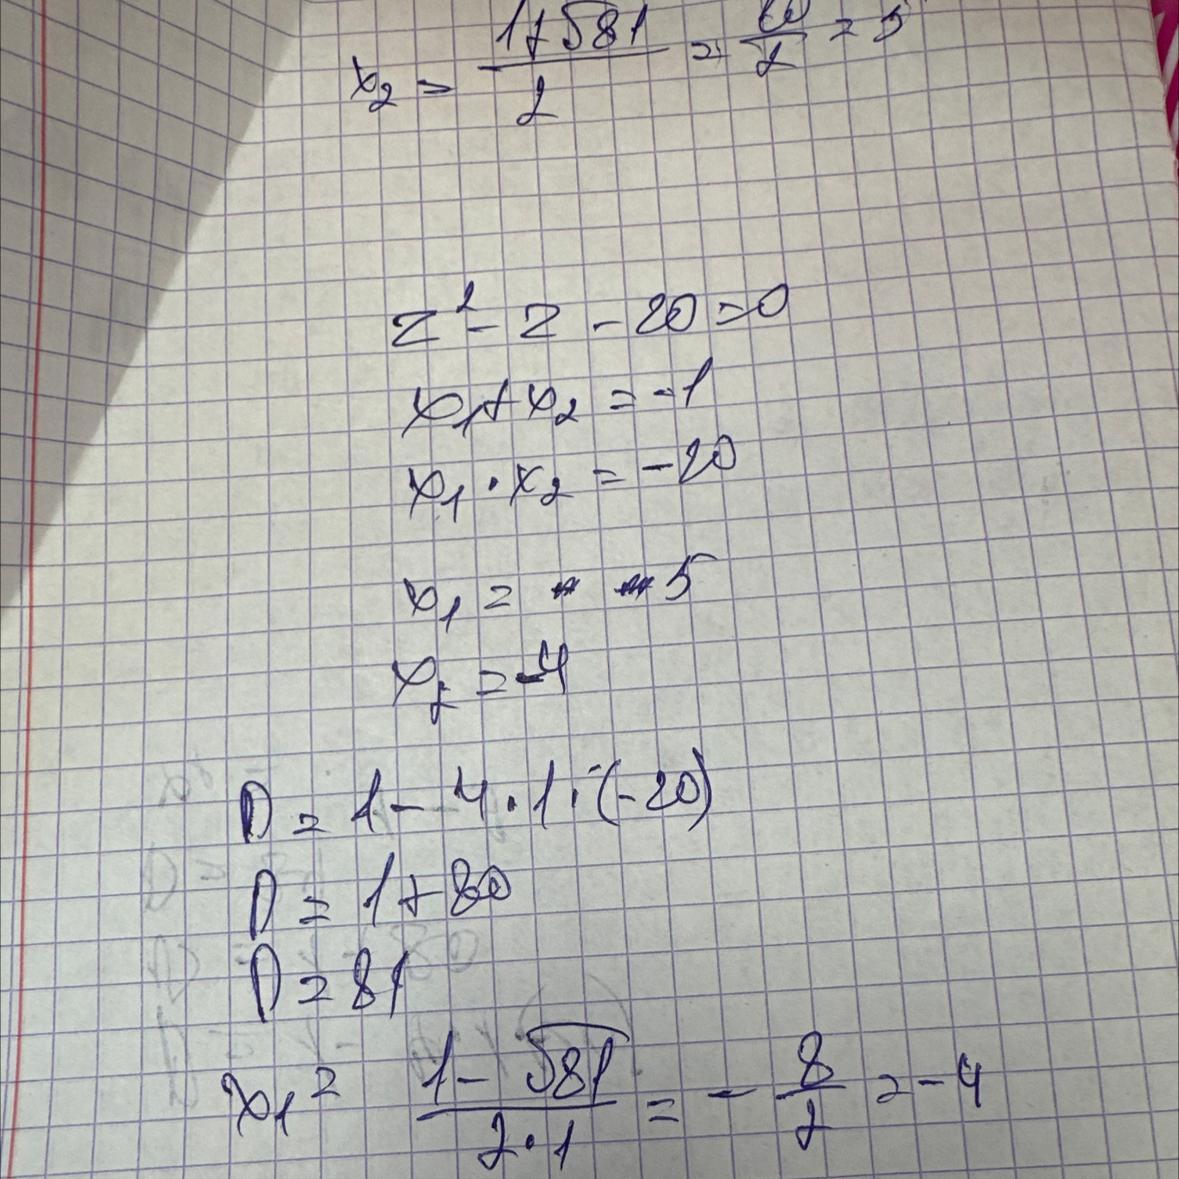 x₂ = (1+√81)/2 = 10/2 = 5
z² - z - 20 = 0
x₁ + x₂ = -1
x₁ · x₂ = -20
x₁ = 5
x₂ = -4
D = 1 - 4 · 1 · (-20)
D = 1 + 80
D = 81
x₁ = (1 - √81)/(2 · 1) = - 8/2 = -4